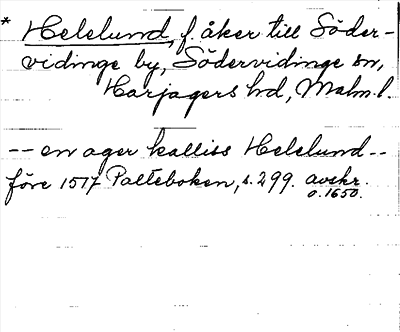 * Helelund, f. åker till Söder-
vidinge by, Södervidinge sn,
Harjagers hd, Malm.l.
-- en ager kalliss Helelund --
före 1517 Palteboken, s. 299. avskr.
o. 1650.